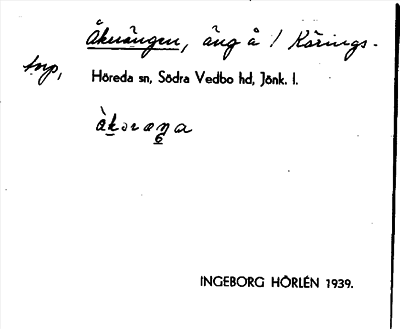 Åkerängen, äng å / Kärings-
torp,
Höreda sn, Södra Vedbo hd, Jönk. l.
INGEBORG HÖRLÉN 1939.